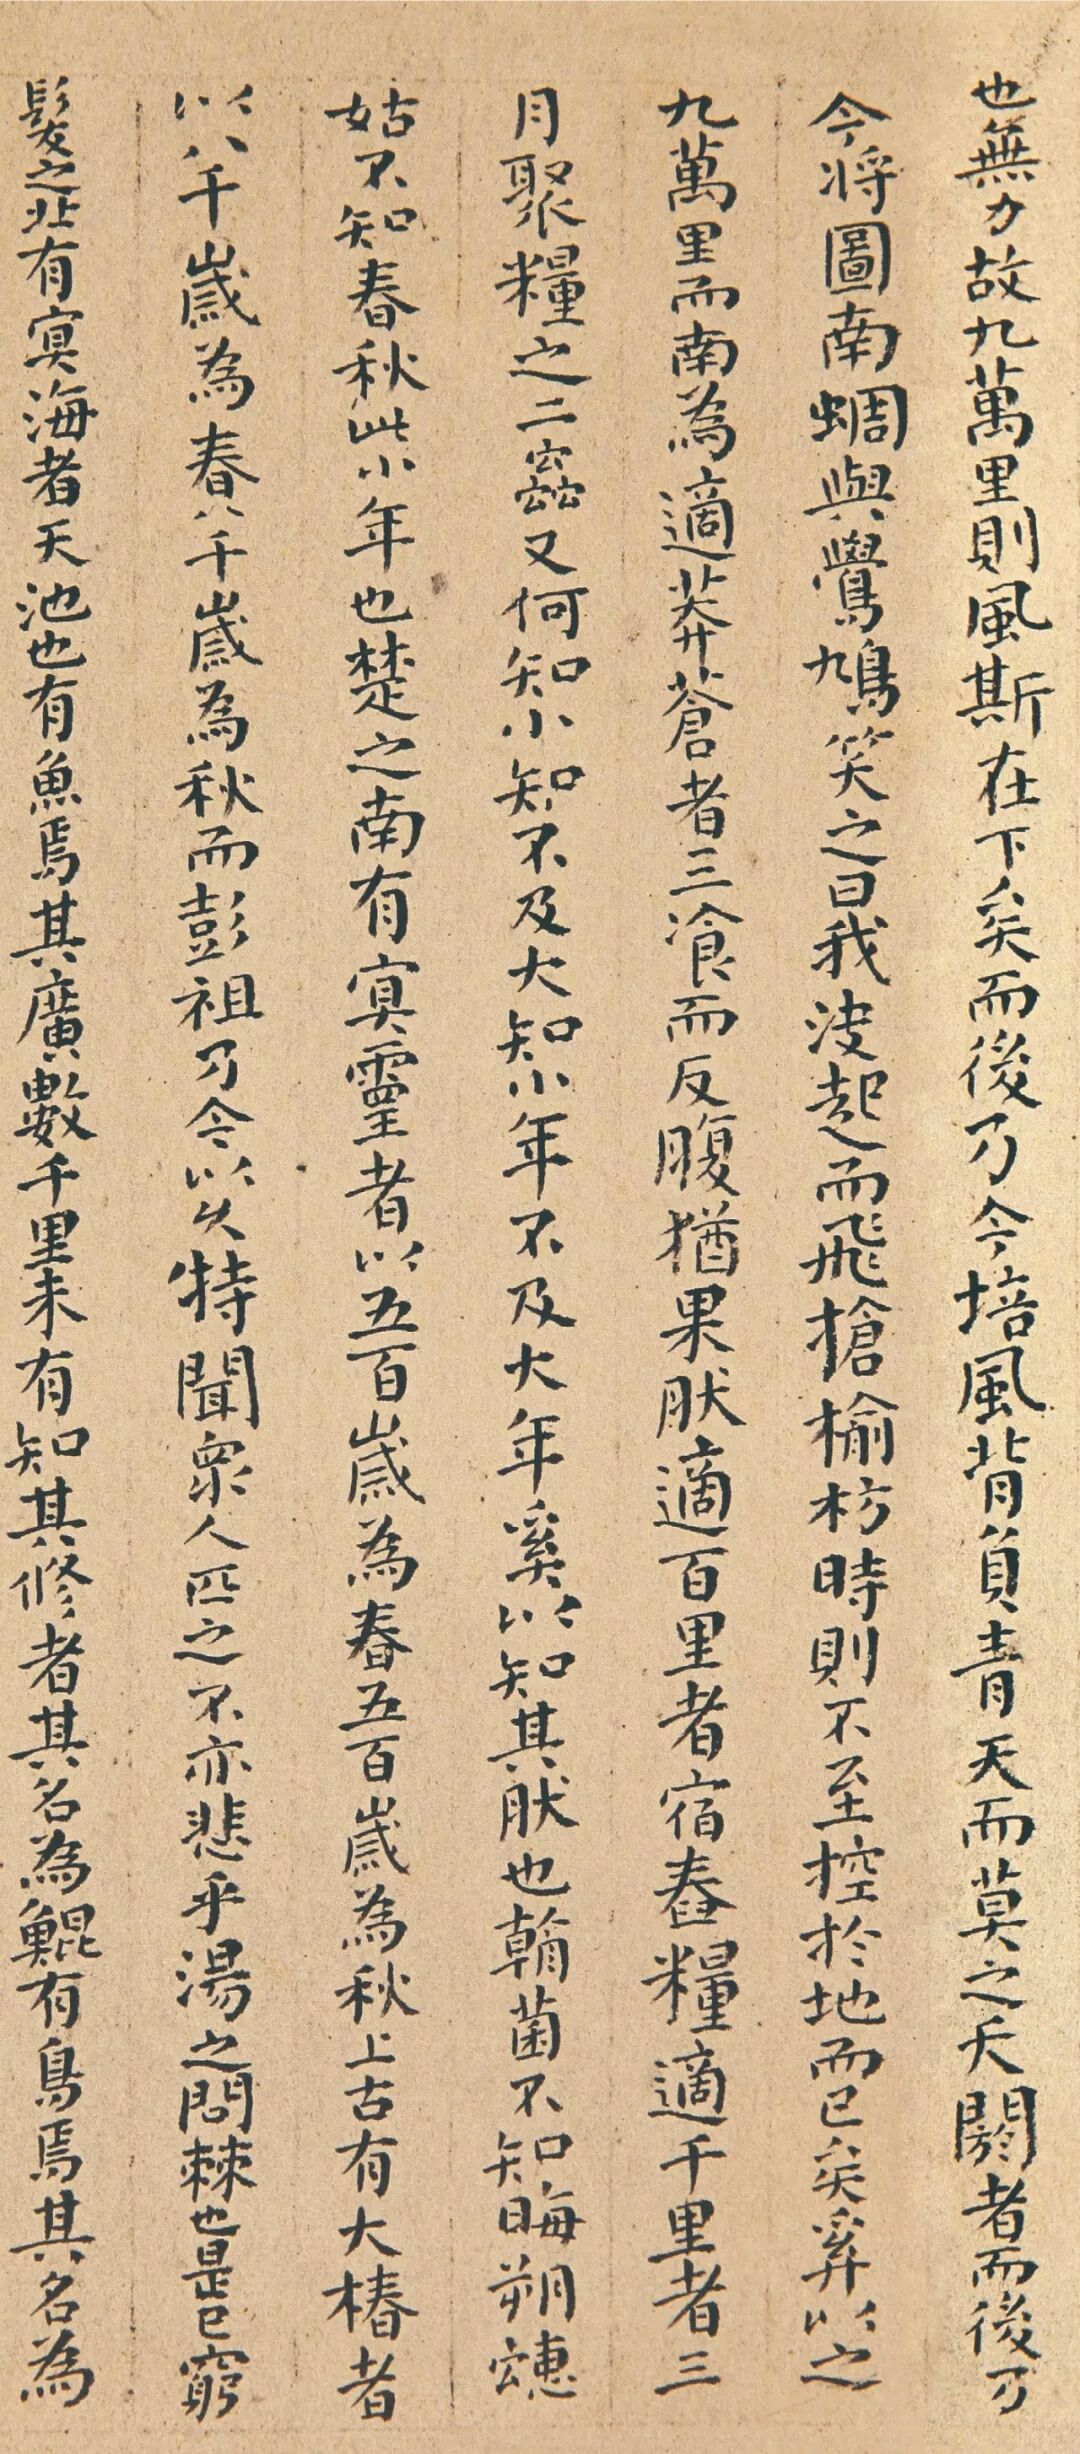 也無力故九萬里則風斯在下矣而後乃今培風背負青天而莫之夭閼者而後乃
今將圖南蜩與鷽鳩笑之曰我决起而飛搶榆枋時則不至控於地而已矣奚以之
九萬里而南為適莽蒼者三飡而反腹猶果肰適百里者宿舂糧適千里者三
月聚糧之二蟲又何知小知不及大知小年不及大年奚以知其肰也朝菌不知晦朔蟪
姑不知春秋此小年也楚之南有冥靈者以五百歲為春五百歲為秋上古有大椿者
以八千歲為春八千歲為秋而彭祖乃今以久特聞衆人匹之不亦悲乎湯之問棘也是已窮
髮之北有冥海者天池也有魚焉其廣數千里未有知其修者其名為鯤有鳥焉其名為